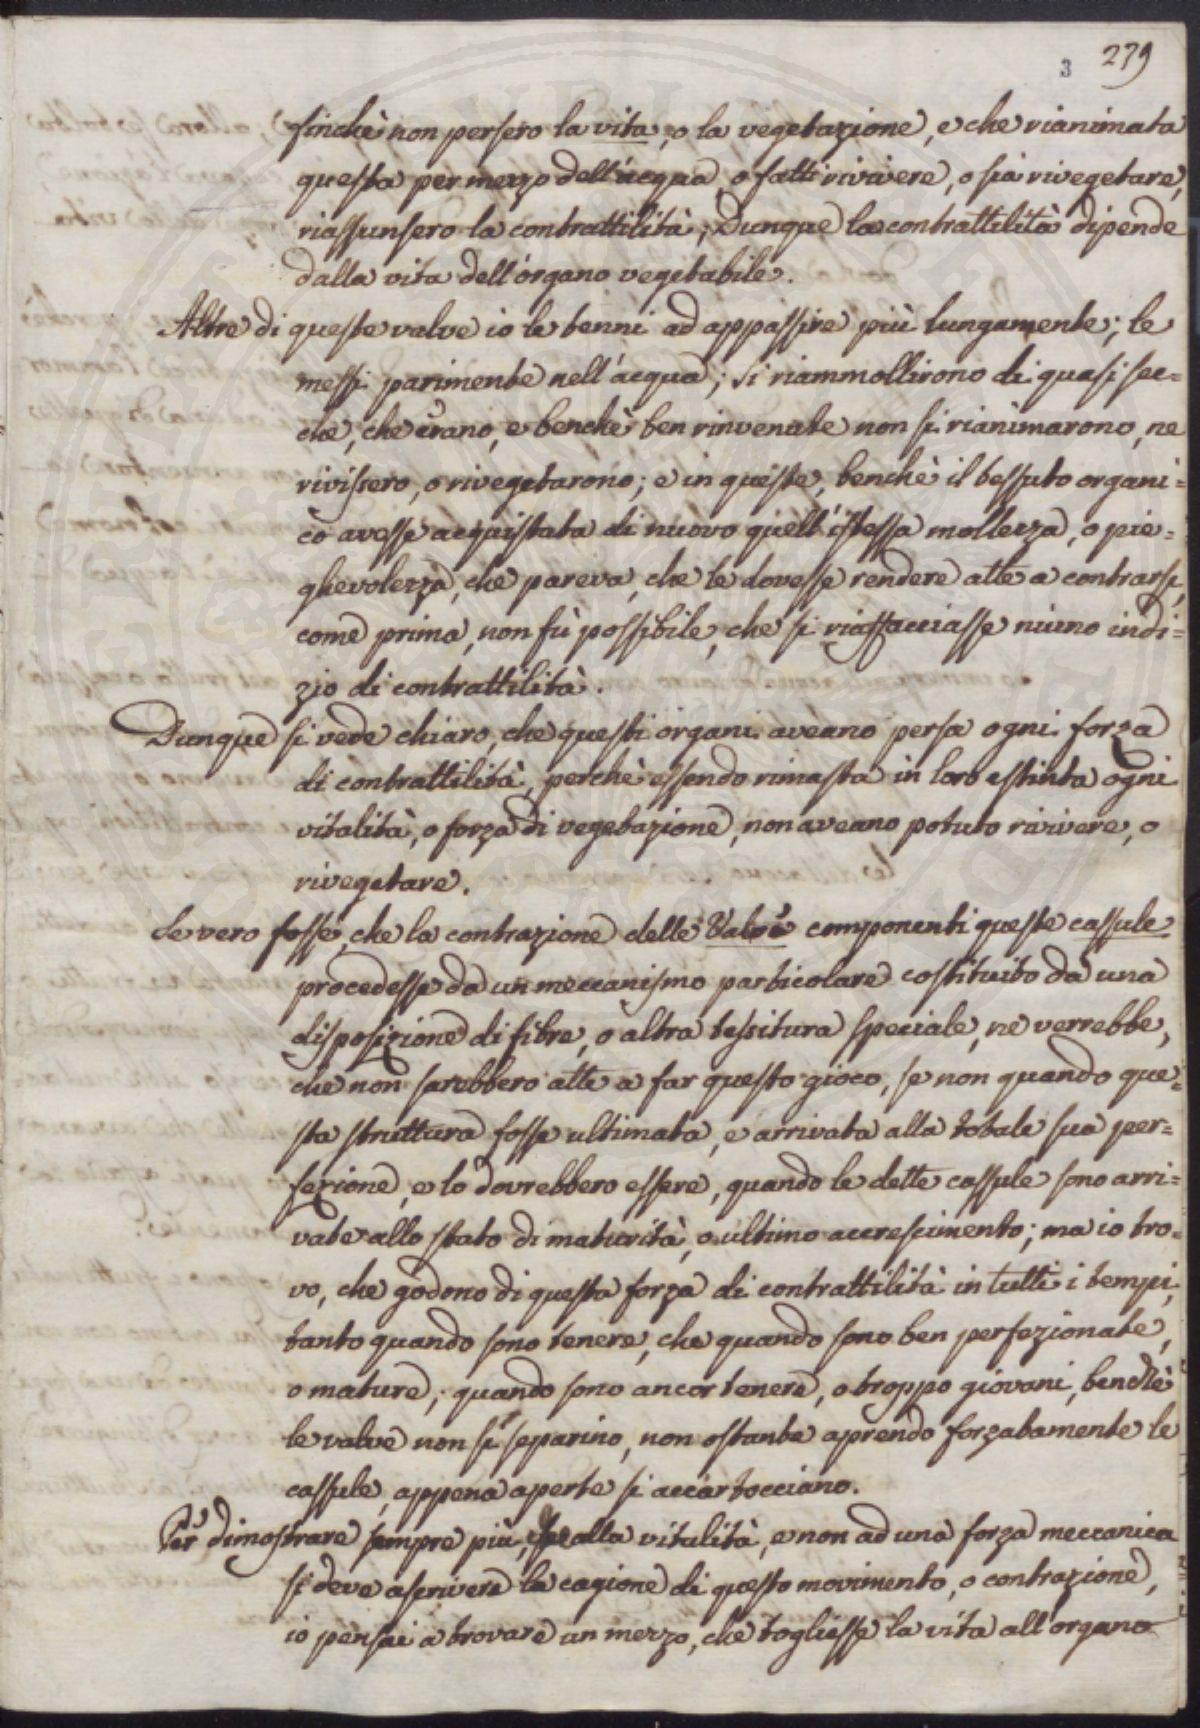 3 279
finchè non persero la vita, o la vegetazione, e che rianimata
questa per mezzo dell'acqua, o fatti rivivere, o sia rivegetare,
riassunsero la contrattilità; Dunque la contrattilità dipende
dalla vita dell'organo vegetabile.
Altre di queste valve io le tenni ad appassire più lungamente; le
messi parimente nell'acqua; si riammollirono di quasi sec=
che, che erano, e benchè ben rinvenate non si rianimarono, ne
rivissero, o rivegetarono; e in queste, benchè il tessuto organi=
co avesse acquistata di nuovo quell'istessa mollezza, o pie=
ghevolezza, che pareva, che le dovesse rendere atte a contrarsi,
come prima, non fù possibile, che si riaffacciasse niuno indi=
zio di contrattilità.
Dunque si vede chiaro, che questi organi aveano persa ogni forza
di contrattilità, perchè essendo rimasta in loro estinta ogni
vitalità, o forza di vegetazione, non aveano potuto rivivere, o
rivegetare.
Se vero fosse, che la contrazione delle Valve componenti queste cassule
procedesse da un meccanismo particolare costituito da una
disposizione di fibre, o altra tessitura speciale, ne verrebbe,
che non sarebbero atte a far questo gioco, se non quando que=
sta struttura fosse ultimata, e arrivata alla totale sua per=
fezione, e lo dovrebbero essere, quando le dette cassule sono arri=
vate allo stato di maturità, o ultimo accrescimento; ma io tro=
vo, che godono di questa forza di contrattilità in tutti i tempi,
tanto quando sono tenere, che quando sono ben perfezionate,
o mature; quando sono ancor tenere, o troppo giovani, benchè
le valve non si separino, non ostante aprendo forzatamente le
cassule, appena aperte si accartocciano.
Per dimostrare sempre più, che alla vitalità, e non ad una forza meccanica
si deve ascrivere la cagione di questo movimento, o contrazione,
io pensai a trovare un mezzo, che togliesse la vita all'organo